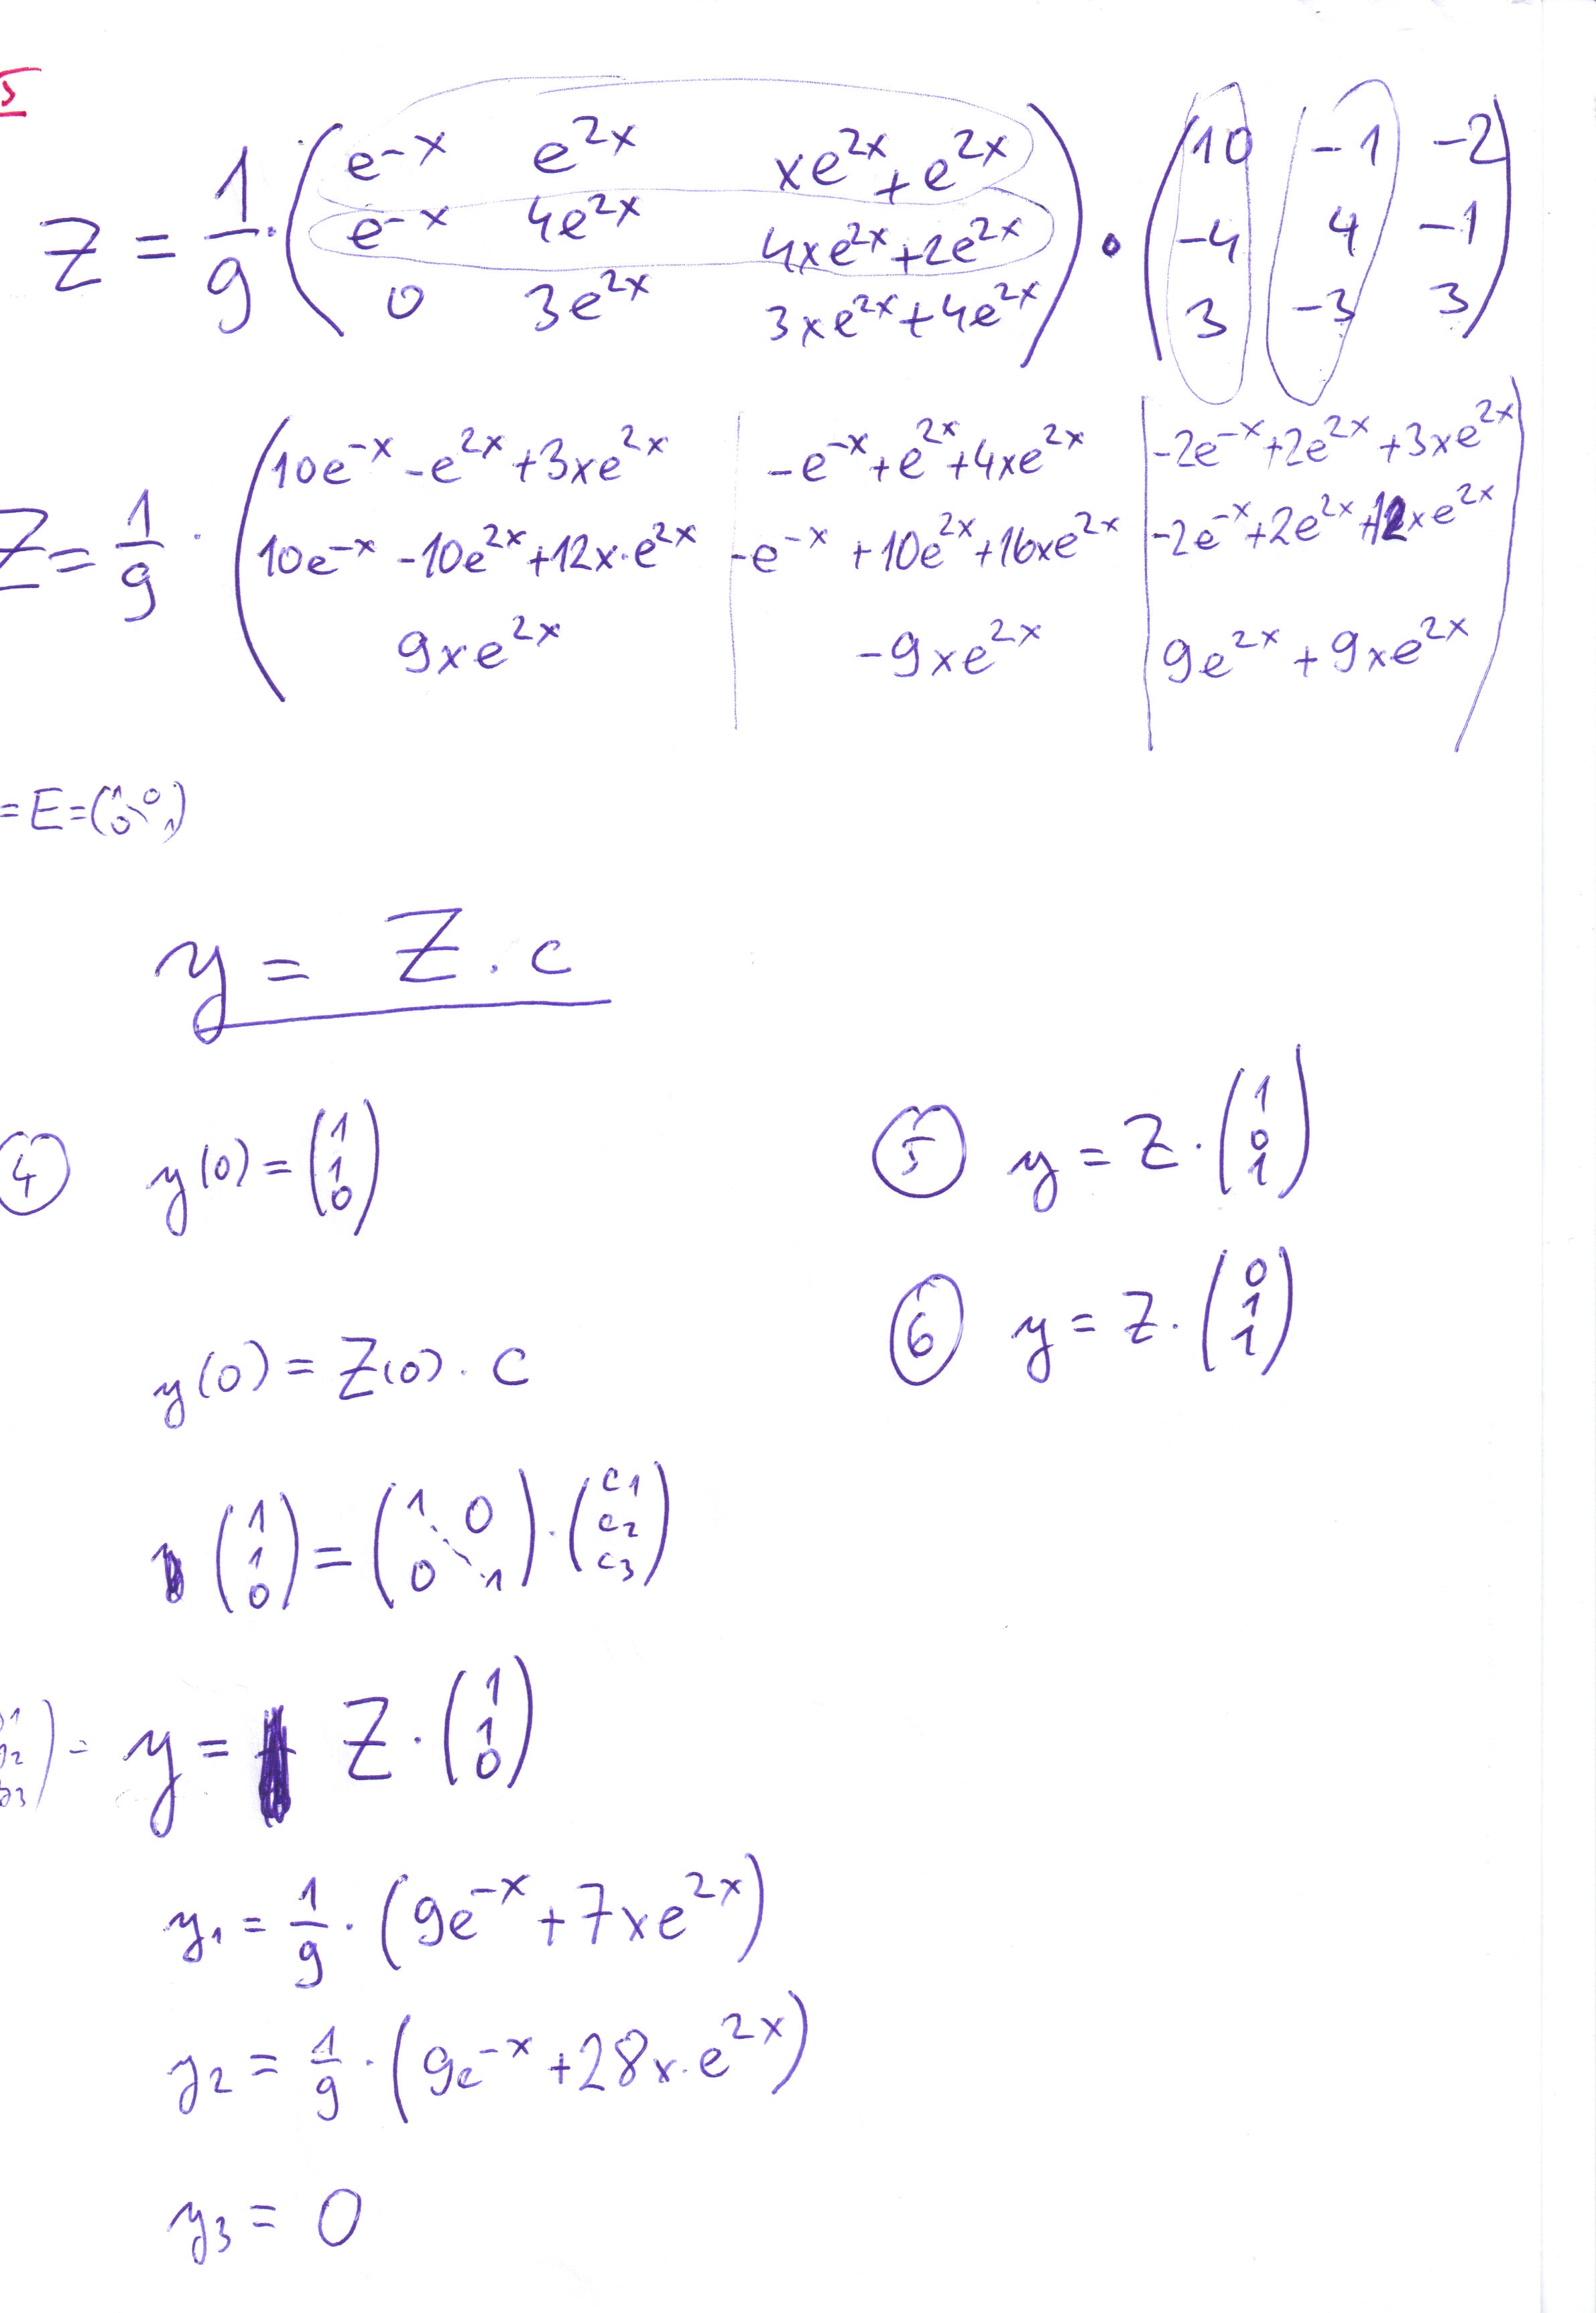 5
Z = 1/9 · ( e^-x e^2x xe^2x + e^2x ; e^-x 4e^2x 4xe^2x + 2e^2x ; 0 3e^2x 3xe^2x + 4e^2x ) · ( 10 -1 -2 ; -4 4 -1 ; 3 -3 3 )
Z = 1/9 · ( 10e^-x - e^2x + 3xe^2x | -e^-x + e^2x + 4xe^2x | -2e^-x + 2e^2x + 3xe^2x ; 10e^-x - 10e^2x + 12x·e^2x | -e^-x + 10e^2x + 16xe^2x | -2e^-x + 2e^2x + 12xe^2x ; 9xe^2x | -9xe^2x | 9e^2x + 9xe^2x )
= E = ( 1 0 ; 0 1 )
y = Z . c
4 y(0) = ( 1 ; 1 ; 0 )
5 y = Z · ( 1 ; 0 ; 1 )
6 y = Z · ( 0 ; 1 ; 1 )
y(0) = Z(0) · c
( 1 ; 1 ; 0 ) = ( 1 0 ; 0 1 ) · ( c1 ; c2 ; c3 )
= y = Z · ( 1 ; 1 ; 0 )
y1 = 1/9 · ( 9e^-x + 7xe^2x )
y2 = 1/9 · ( 9e^-x + 28x·e^2x )
y3 = 0